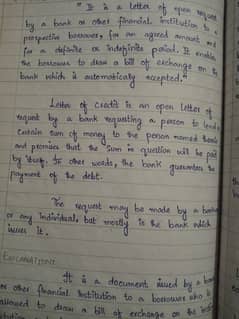 " It is a letter of open request
by a bank or other financial institution to a
prospective borrower, for an agreed amount and
for a definite or indefinite period. It enables
the borrower to draw a bill of exchange on the
bank which is automatically accepted."
Letter of credit is an open letter of
request by a bank requesting a person to lend
certain sum of money to the person named therein
and promises that the sum in question will be paid
by itself. In other words, the bank guarantees the
payment of the debt.
The request may be made by a banker
or any individual, but mostly is the bank which
issues it.
EXPLANATIONS
It is a document issued by a bank
or other financial institution to a borrower who is
allowed to draw a bill of exchange on the